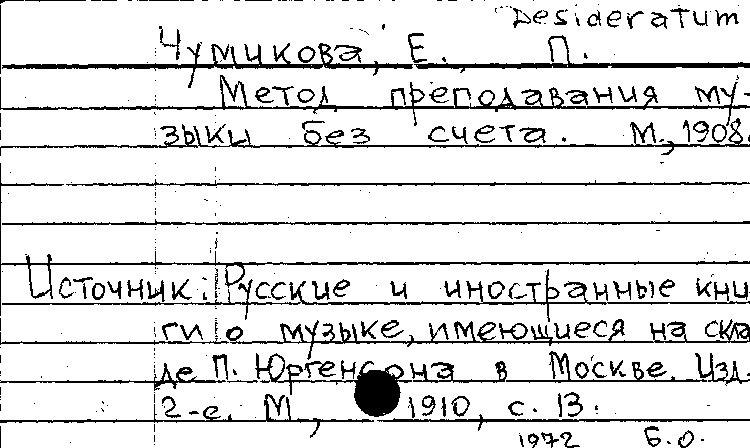 Desideratum
Чумикова, Е. П.
Метод преподавания му-
зыки без счета. М., 1908.
Источник: Русские и иностранные кни
ги о музыке, имеющиеся на скла
де П. Юргенсона в Москве. Изд.
2-е. М., 1910, с. 13.
1972 Б.О.